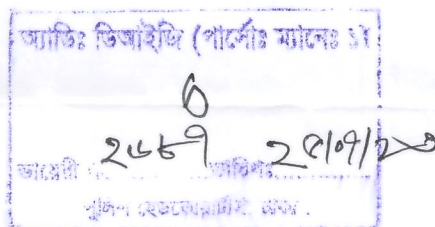 অ্যাডিঃ ডিআইজি (পার্সোঃ ম্যানেঃ ১)
৩
ডায়েরী নং ২৬৮৭ তারিখঃ ২৫/০৭/২৩
পুলিশ হেডকোয়ার্টার্স, ঢাকা।